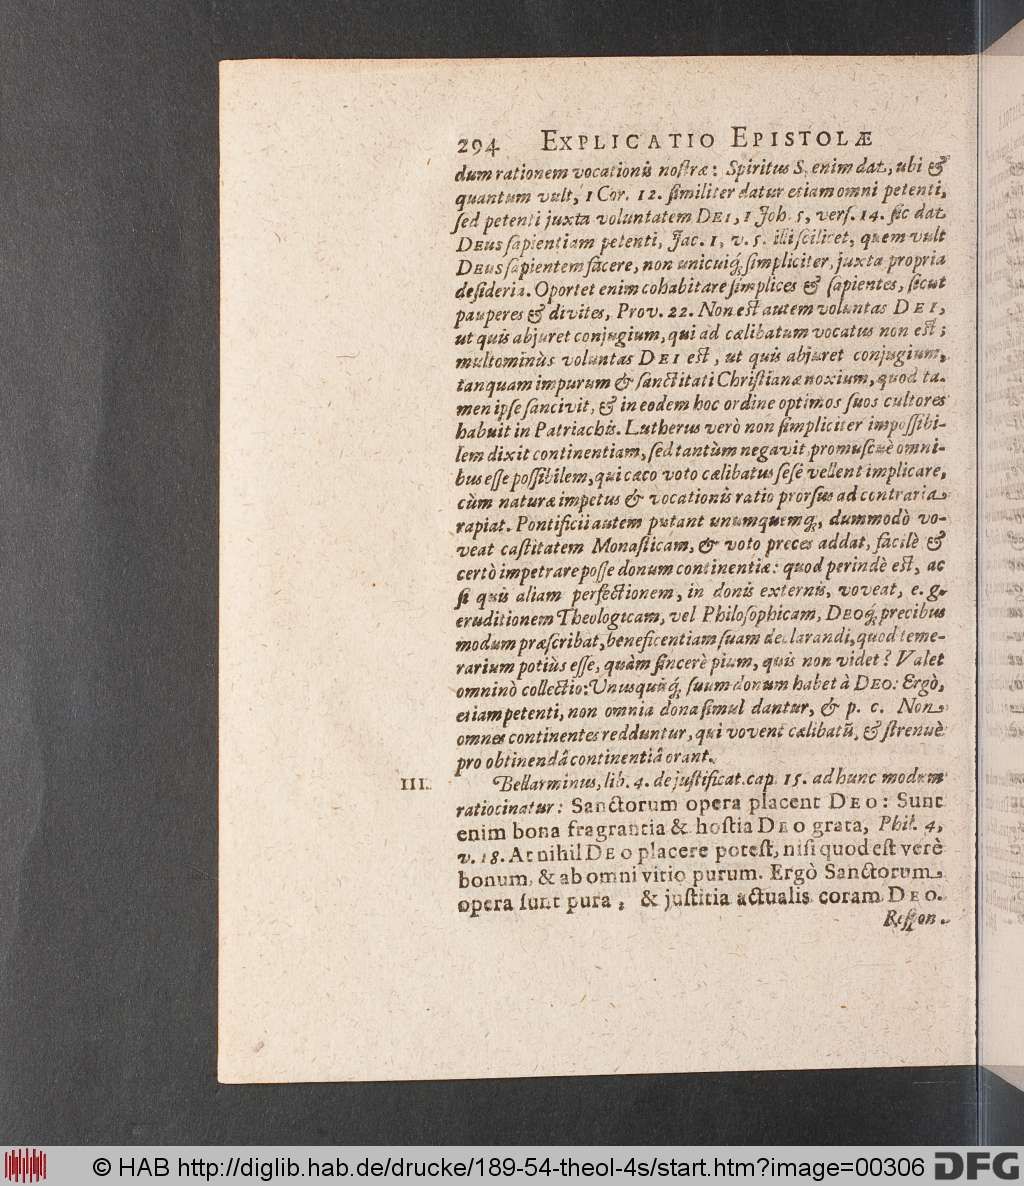 294 EXPLICATIO EPISTOLÆ
dum rationem vocationis nostræ: Spiritus S. enim dat, ubi &
quantum vult, 1 Cor. 12. similiter datur etiam omni petenti,
sed petenti juxta voluntatem DEI, 1 Joh. 5, vers. 14. sic dat
DEUS sapientiam petenti, Jac. 1, v. 5. illi scilicet, quem vult
DEUS sapientem facere, non unicuiq; simpliciter, juxta propria
desideria. Oportet enim cohabitare simplices & sapientes, sicut
pauperes & divites, Prov. 22. Non est autem voluntas DEI,
ut quis abjuret conjugium, qui ad cælibatum vocatus non est;
multominùs voluntas DEI est, ut quis abjuret conjugium,
tanquam impurum & sanctitati Christianæ noxium, quod ta-
men ipse sancivit, & in eodem hoc ordine optimos suos cultores
habuit in Patriachis. Lutherus verò non simpliciter impossibi-
lem dixit continentiam, sed tantùm negavit, promiscuè omni-
bus esse possibilem, qui cæco voto cælibatus sese vellent implicare,
cùm naturæ impetus & vocationis ratio prorsus ad contraria
rapiat. Pontificii autem putant unumquemq;, dummodò vo-
veat castitatem Monasticam, & voto preces addat, facilè &
certò impetrare posse donum continentiæ: quod perindè est, ac
si quis aliam perfectionem, in donis externis, voveat, e. g.
eruditionem Theologicam, vel Philosophicam, DEOq; precibus
modum præscribat, beneficentiam suam declarandi, quod teme-
rarium potiùs esse, quàm sincerè pium, quis non videt? Valet
omninò collectio: Unusquisq; suum donum habet à DEO: Ergò,
etiam petenti, non omnia dona simul dantur, & p. c. Non
omnes continentes redduntur, qui vovent cælibatũ, & strenuè
pro obtinendâ continentiâ orant.
III. Bellarminus, lib. 4. de justificat. cap. 15. ad hunc modum
ratiocinatur: Sanctorum opera placent DEO: Sunt
enim bona fragrantia & hostia DEO grata, Phil. 4,
v. 18. At nihil DEO placere potest, nisi quod est verè
bonum, & ab omni vitio purum. Ergò Sanctorum
opera sunt pura, & justitia actualis coram DEO.
Respon-
© HAB http://diglib.hab.de/drucke/189-54-theol-4s/start.htm?image=00306 DFG